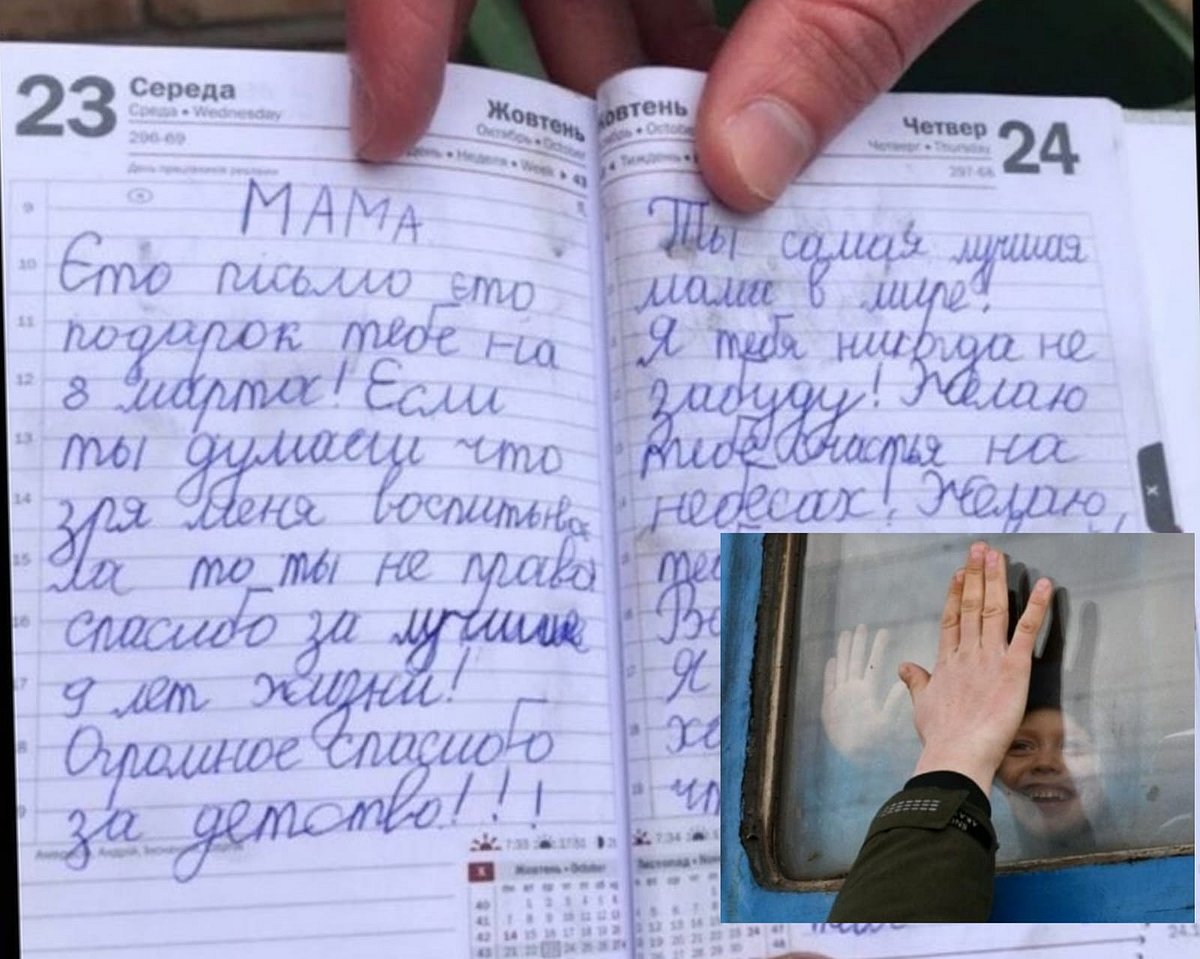 23 Середа
Среда • Wednesday
296-69
Жовтень
Октябрь • October
День • Неделя • Week ▸ 43
МАМА
Єто письмо єто
подарок тебе на
8 марта! Если
ты думаеш что
зря меня воспитыва
ла то ты не права
спасибо за лучшие
9 лет жизни!
Огромное спасибо
за детство!!!
Жовтень • October
овтень
October
Тиждень
Четвер 24
Четверг • Thursday
297-68
Ты самая лучшая
мама в мире!
Я тебя никогда не
забуду! Желаю
тебе счастья на
небесах! Желаю
те
Во
Я
хо
чт
7:33 17:51
7:34
Листопад